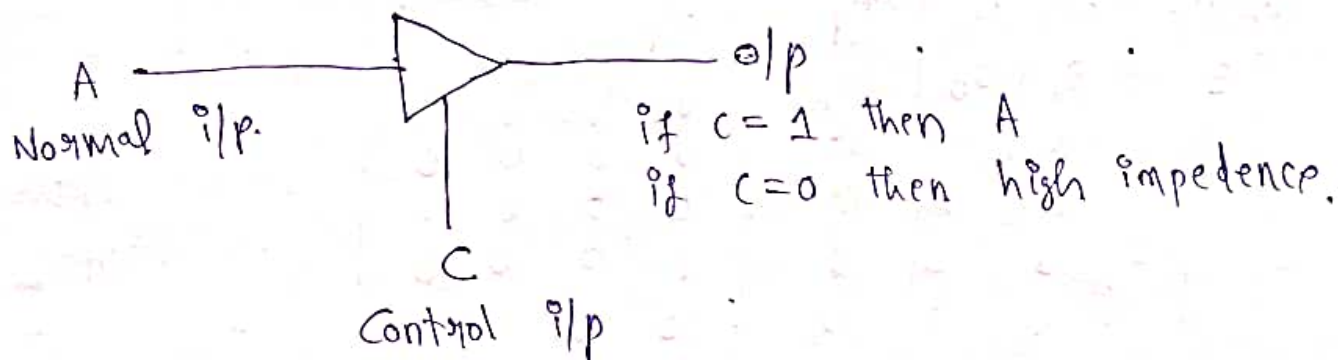 A
Normal i/p.
o/p
if C = 1 then A
if C=0 then high impedence.
C
Control i/p